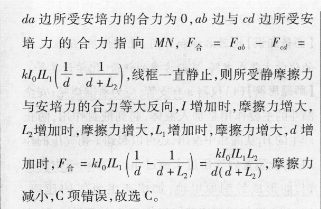 da 边所受安培力的合力为0,ab 边与 cd 边所受安
培力的合力指向 MN, F合 = Fab - Fcd =
kI₀IL₁(1/d - 1/(d+L₂)),线框一直静止,则所受静摩擦力
与安培力的合力等大反向,I 增加时,摩擦力增大,
L₂增加时,摩擦力增大,L₁增加时,摩擦力增大,d 增
加时,F合 = kI₀IL₁(1/d - 1/(d+L₂)) = kI₀IL₁L₂/(d(d+L₂)),摩擦力
减小,C 项错误,故选 C。